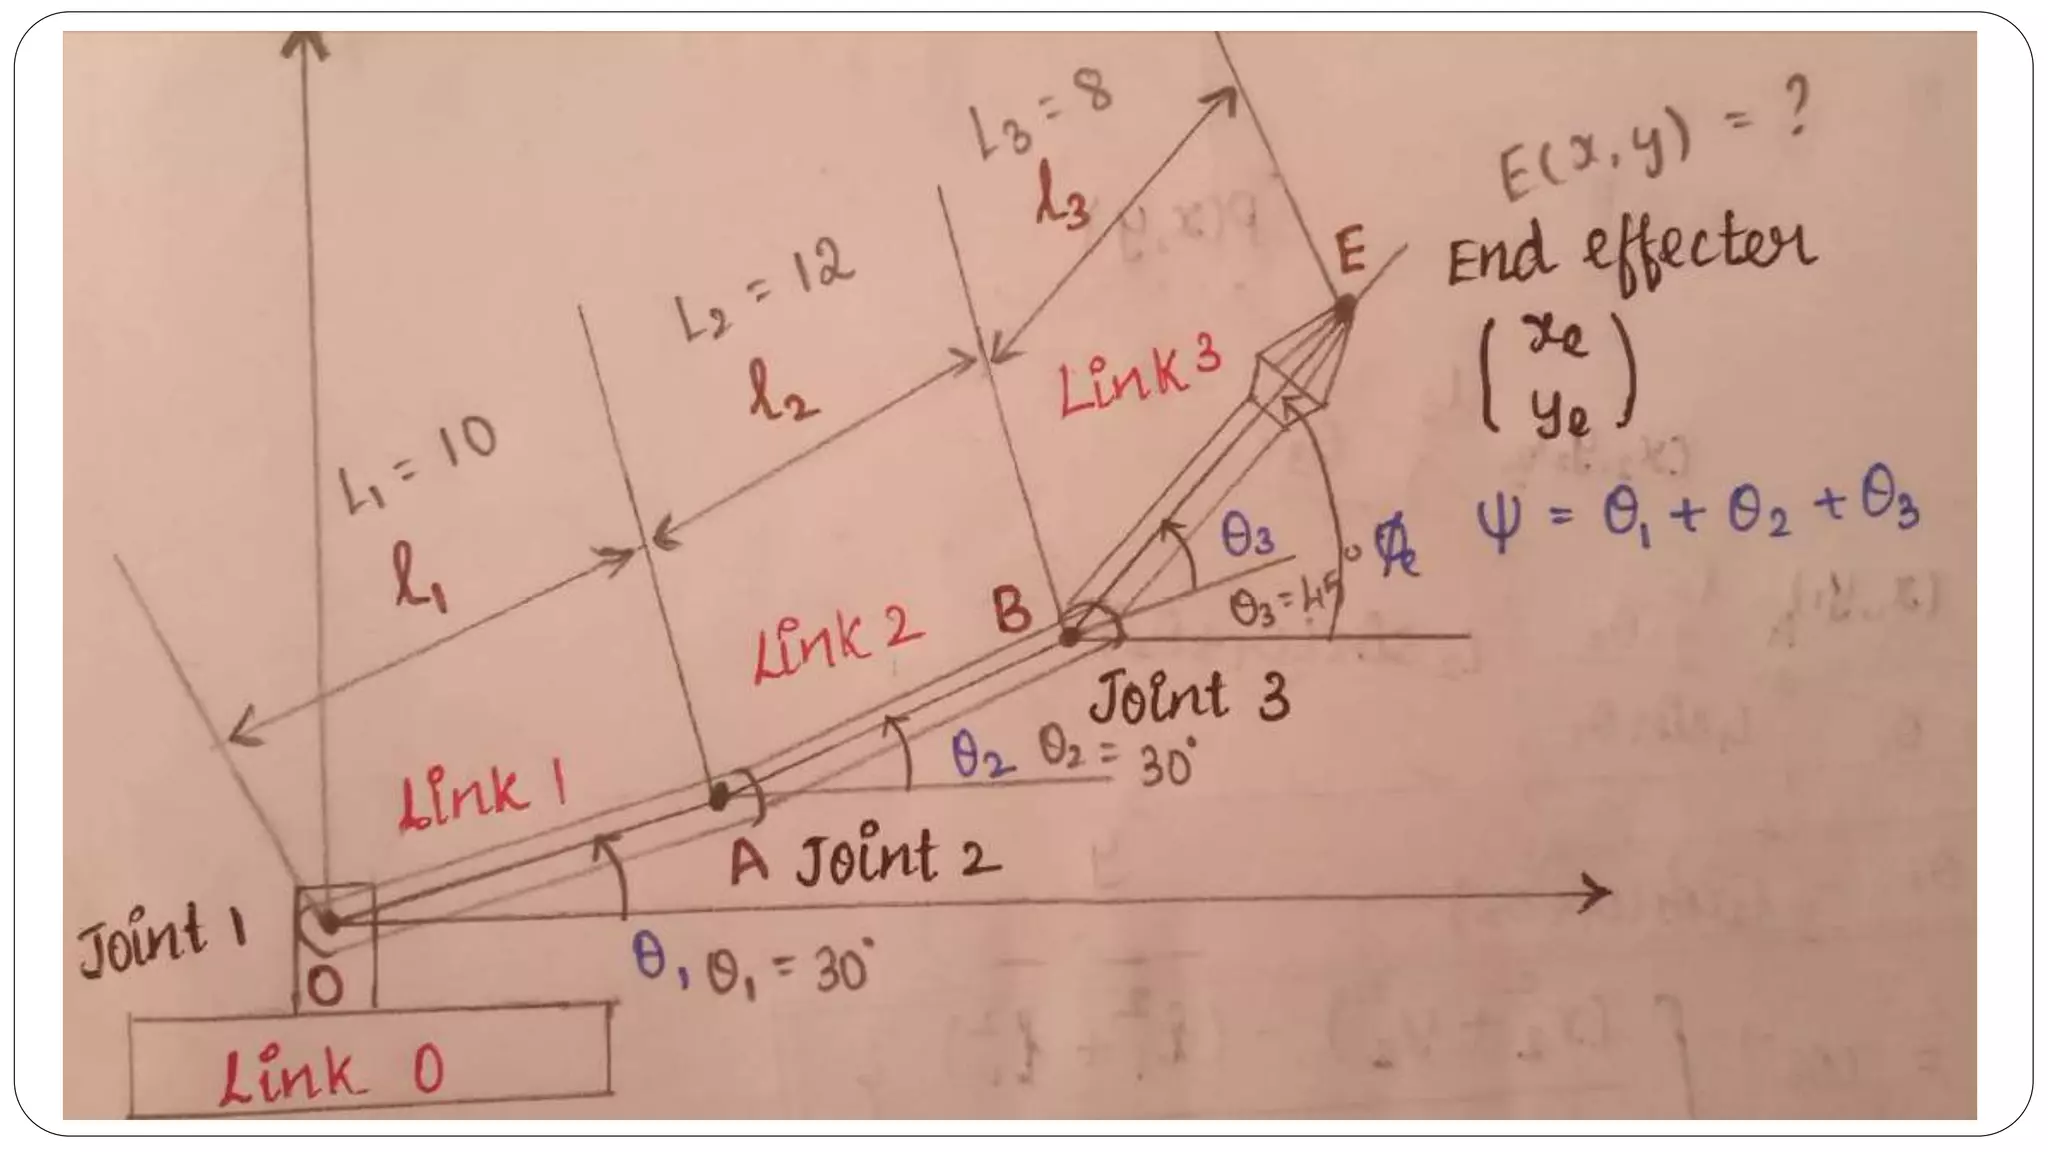 L3 = 8
l3
E(x, y) = ?
E
End effecter
xe
ye
L2 = 12
l2
Link 3
L1 = 10
l1
θ3
ψ = θ1 + θ2 + θ3
θ3 = 45°
B
Link 2
Joint 3
θ2 θ2 = 30°
Link 1
A Joint 2
Joint 1
O
θ1 θ1 = 30°
Link 0